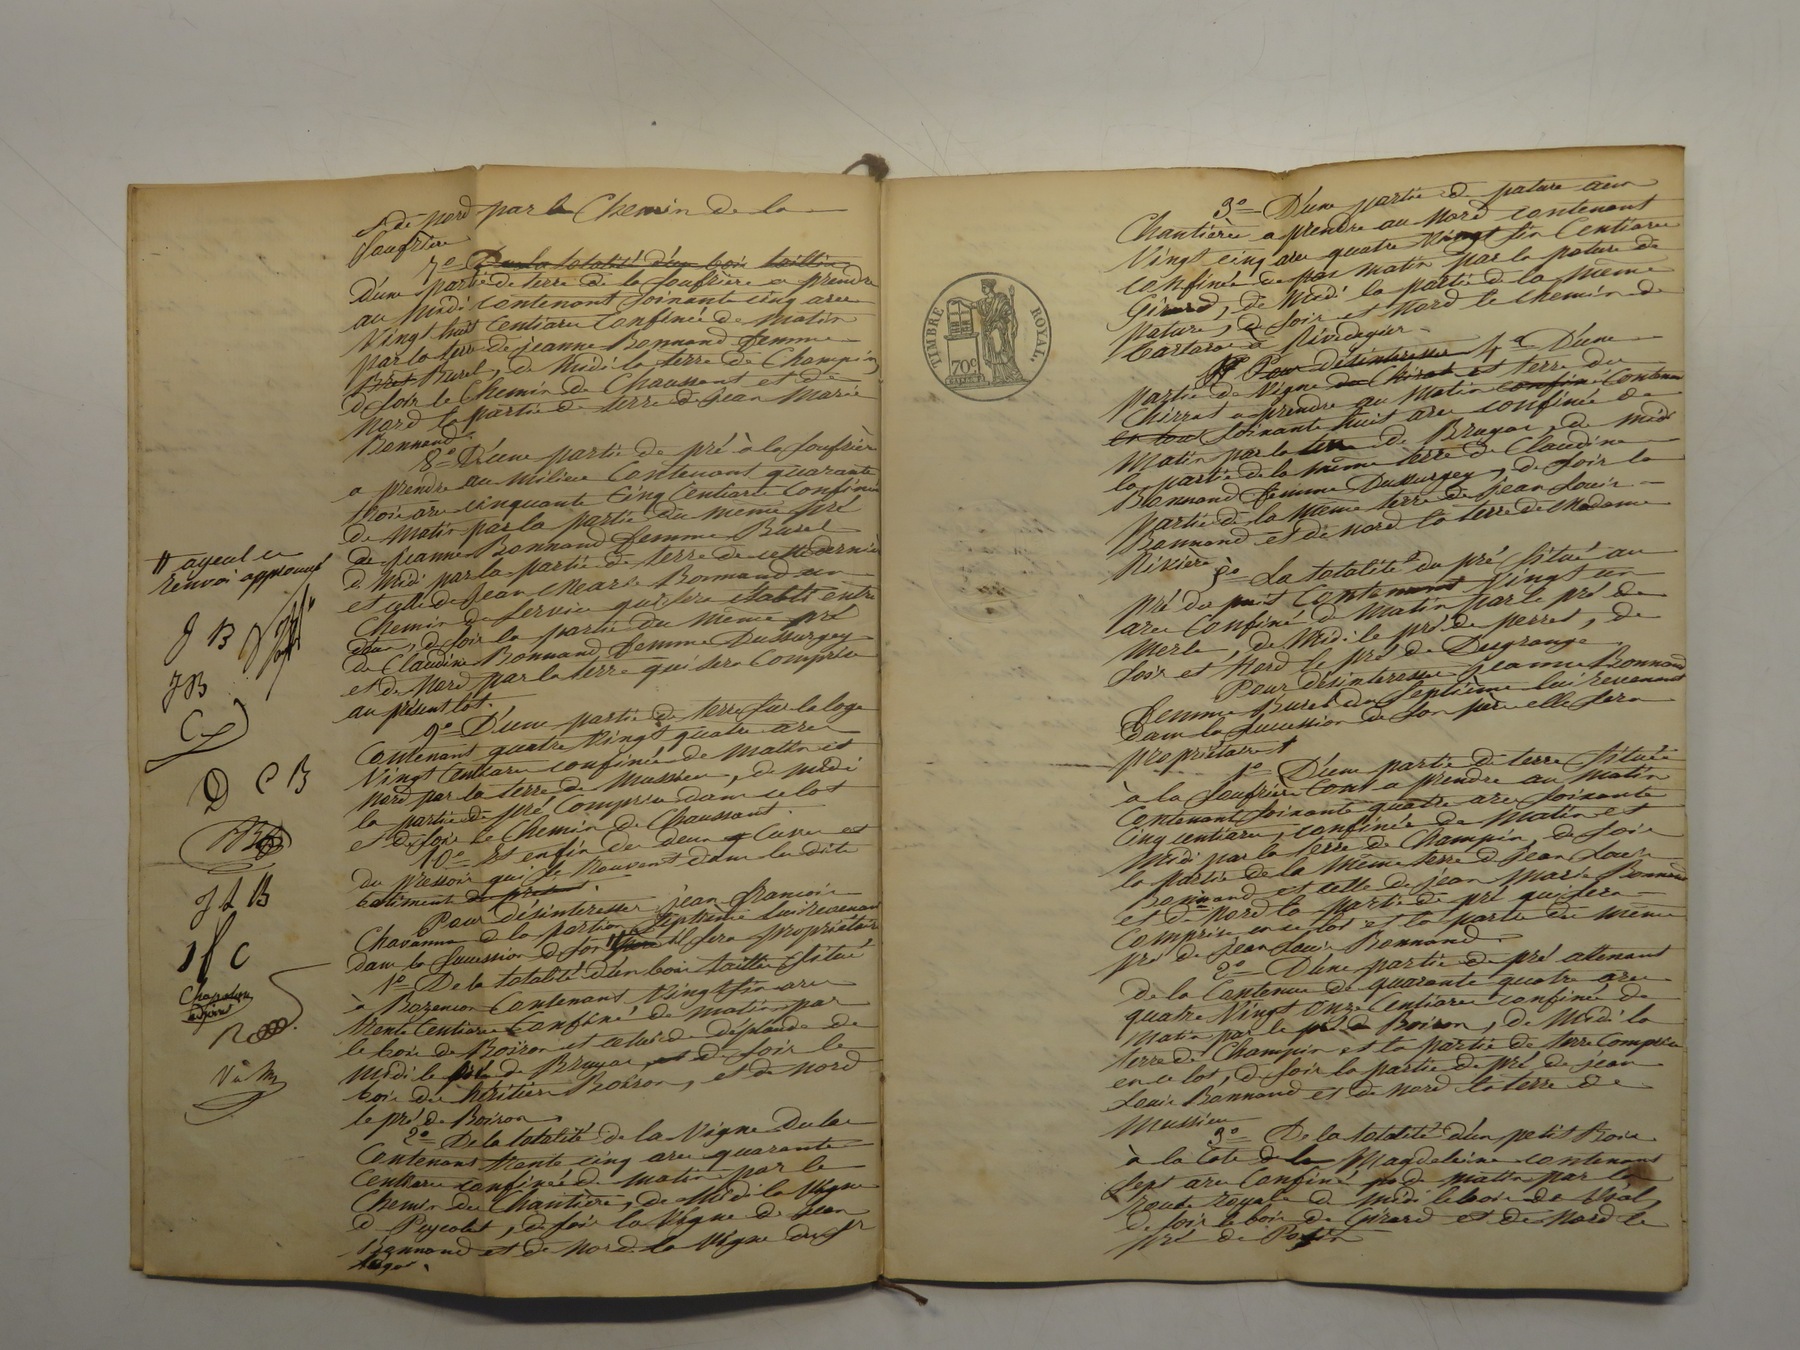 et de Nord par le Chemin de la
Soufrière
7o De la totalité d'un bois taillis
D'une partie de terre de la Soufrière a prendre
au Midi contenant soixante cinq ares
Vingt huit Centiares Confinée de Matin
par la terre de jeanne Bonnand femme
Buret, de Midi la terre de Champin,
de soir le Chemin de Chaussant et de
Nord la partie de terre de jean Marie
Bonnand.
8o D'une partie de pré à la Soufrière
a prendre au Milieu Contenant quarante
trois ares cinquante Cinq Centiares Confinée
de Matin par la partie du même pré
de jeanne Bonnand femme Buret
de Midi par la partie de terre de cette dernière
et celle de Jean Marie Bonnand un
Chemin de Service qui sera établi entre
deux, de soir la partie du même pré
de Claudine Bonnand femme Dussurgey
et de Nord par la terre qui sera Comprise
au présent lot.
9o D'une partie de terre sur la loge
Contenant quatre Vingt quatre ares
Vingt Centiares confinée de Matin et
Nord par la terre de Mussieu, de Midi
la partie de pré Comprise dans ce lot
et de soir le Chemin de Chaussant.
10o Et enfin de deux Cuves et
du pressoir qui se trouvent dans les dits
batiments
Pour désintéresser jean françois
Chavanne de la portion Septième lui revenant
dans la succession de son " il sera propriétaire
1o De la totalité d'un bois taillis situé
à Bozençon Contenant Vingt six ares
trente Centiares Confiné de Matin par
le bois de Boiron et celui de déplaude de
Midi le pré de Bruyas, de soir le
bois des héritiers Boiron, et de Nord
le pré de Boiron
2o De la totalité de la Vigne Dulac
Contenant trente cinq ares quarante
Centiares confinée de Matin par le
Chemin des Chantières, de Midi la Vigne
de Peycelet, de soir la Vigne de Jean
Bonnand et de Nord la Vigne du Sr
" ayeul ce
renvoi approuvé
J B
J B
D C B
J L B
J f C
Chapelon
adjoint
TIMBRE ROYAL.
70c
3o D'une partie de pature aux
Chantières a prendre au Nord contenant
Vingt cinq ares quatre Vingt six Centiares
confinée de Matin par la pature de
Girard, de Midi la partie de la même
pature, de soir et Nord le chemin de
Tartaras à Rivedegier
Pour désintéresser 4o D'une
Partie de Vigne du Chirat et terre du
Chirrat a prendre au Matin confiné Contenant
et tout soixante huit ares confinée de
Matin par la terre de Bruyas, de Midi
la partie de la même terre de Claudine
Bonnand femme Dussurgey, de soir la
partie de la même terre de jean Louis
Bonnand et de Nord la terre de Madame
Rivière
5o La totalité du pré situé au
pré du puit Contenant Vingt un
ares Confiné de Matin par le pré de
Merle, de Midi le pré de perret, de
soir et Nord le pré de Dugrange
Pour désintéresser jeanne Bonnand
femme Buret du Septième lui revenant
dans la succession de son père elle sera
propriétaire
1o D'une partie de terre située
à la Soufrière Cont a prendre au Matin
Contenant soixante quatre ares soixante
Cinq centiares, confinée de Matin et
Midi par la terre de Champin, de soir
la partie de la même terre de Jean Louis
Bonnand et celle de jean Marie Bonnand
et de Nord la partie de pré qui sera
Comprise en ce lot et la partie du même
pré de jean Louis Bonnand
2o D'une partie de pré attenant
de la Contenue de quarante quatre ares
quatre Vingt onze Centiares confinée de
Matin par le pré de Boiron, de Midi la
terre de Champin et la partie de terre Comprise
en ce lot, de soir la partie de pré de jean
Louis Bonnand et de Nord la terre de
Mussieu
3o De la totalité d'un petit bois
à la Cote de la Mandeleine contenant
Sept ares Confiné de Matin par la
route royale de Midi le bois de Vial,
de soir le bois de Girard et de Nord le
pré de